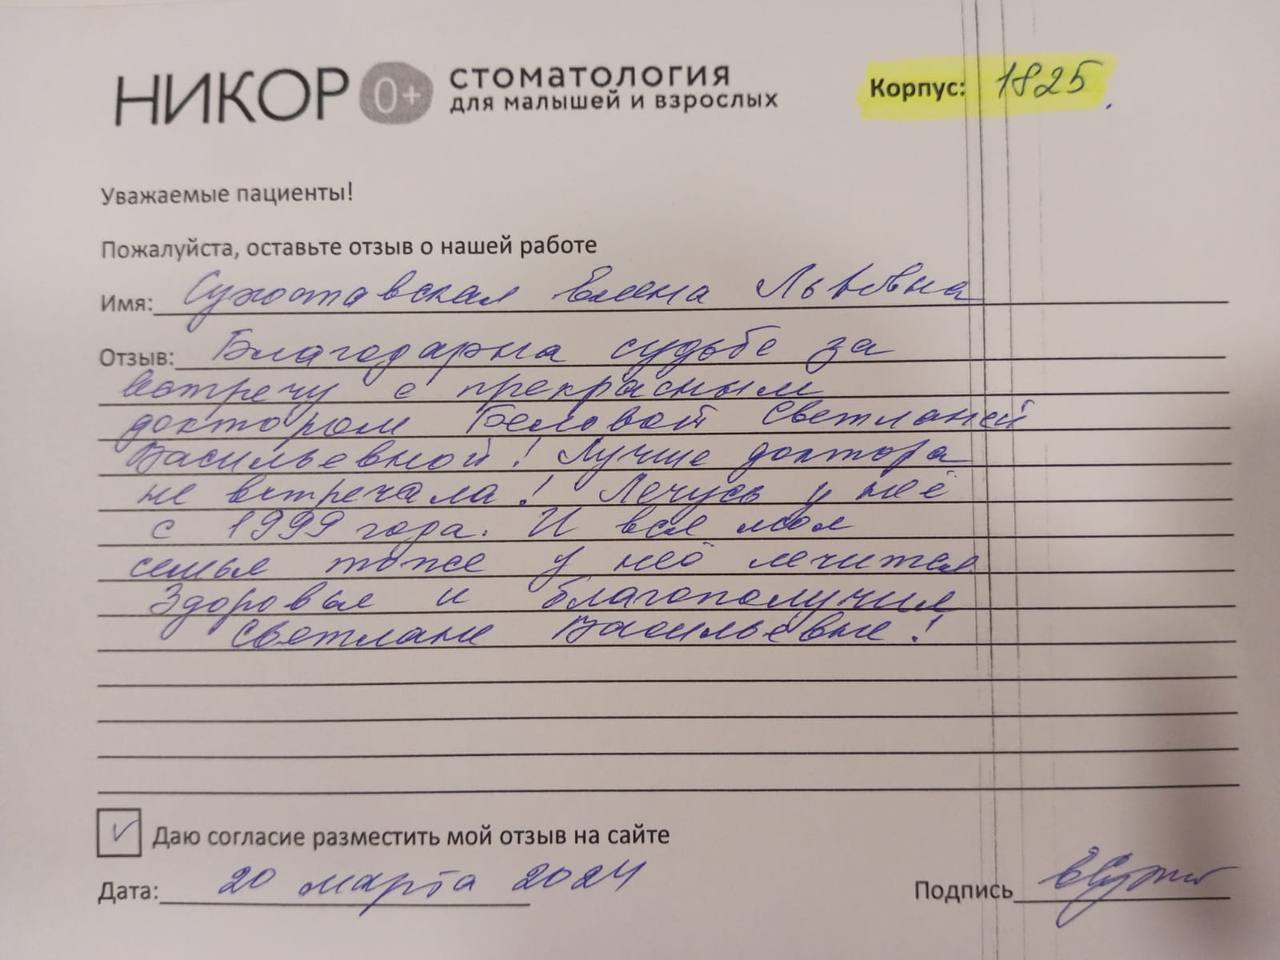 НИКОР 0+ СТОМАТОЛОГИЯ
ДЛЯ МАЛЫШЕЙ И ВЗРОСЛЫХ
Корпус: 1825
Уважаемые пациенты!
Пожалуйста, оставьте отзыв о нашей работе
Имя: Сухоставская Елена Львовна
Отзыв: Благодарна судьбе за
встречу с прекрасным
доктором Беловой Светланой
Васильевной! Лучше доктора
не встречала! Лечусь у неё
с 1999 года. И вся моя
семья тоже у неё лечится
Здоровья и благополучия
Светлане Васильевне!
Даю согласие разместить мой отзыв на сайте
Дата: 20 марта 2024
Подпись